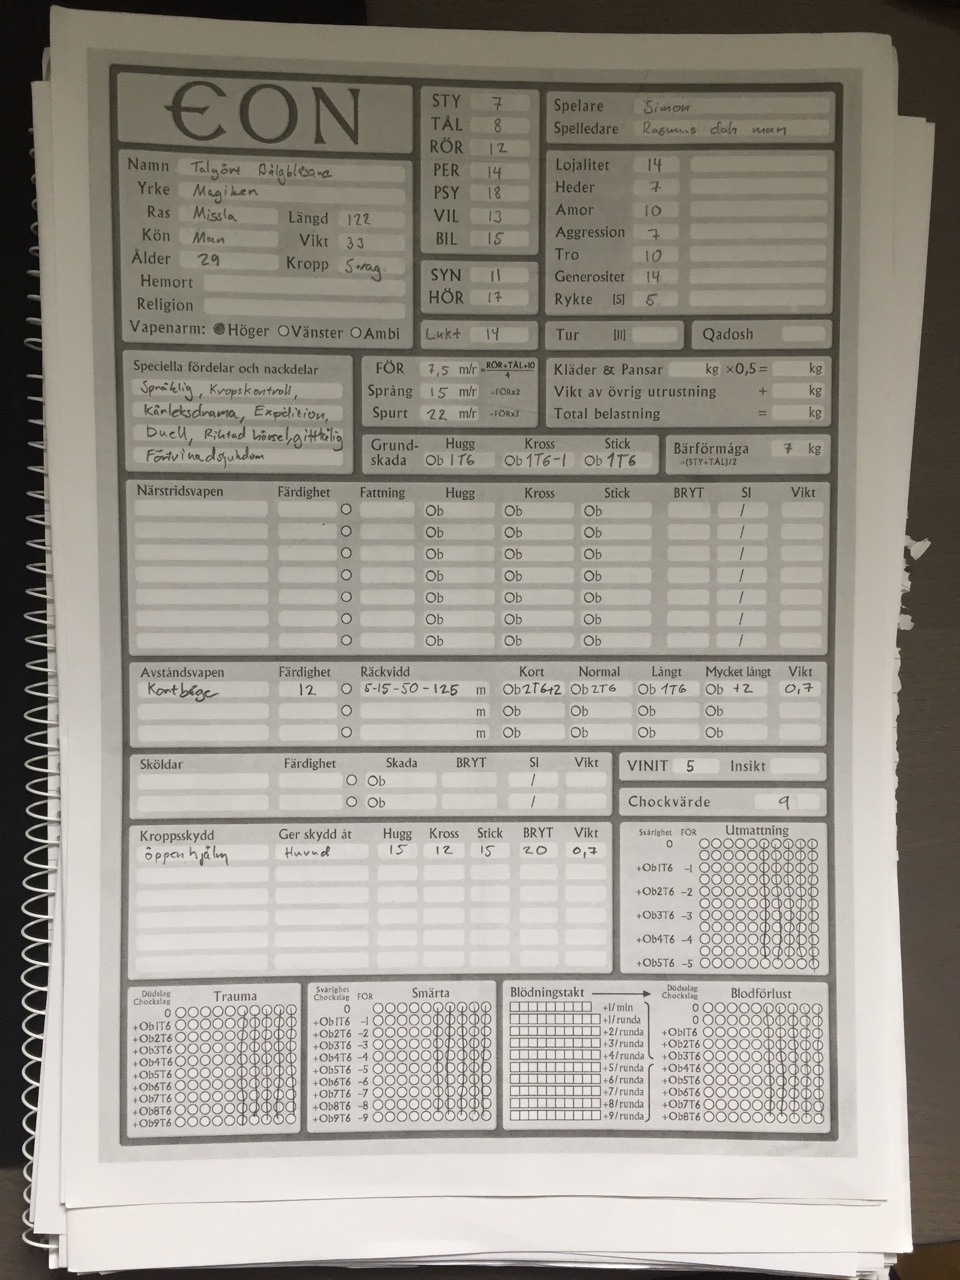 EON
STY 7
TÅL 8
RÖR 12
PER 14
PSY 18
VIL 13
BIL 15
SYN 11
HÖR 17
Lukt 14
Spelare Simon
Spelledare Rasmus dah man
Namn Talgört
Yrke Magiken
Ras Missla Längd 122
Kön Man Vikt 33
Ålder 29 Kropp Svag
Hemort
Religion
Vapenarm: Höger Vänster Ambi
Lojalitet 14
Heder 7
Amor 10
Aggression 7
Tro 10
Generositet 14
Rykte [5] 5
Tur [11] Qadosh
Speciella fördelar och nackdelar
Språklig, Kropskontroll,
Kärleksdrama, Expedition,
Duell, Riktad hörsel, gifttålig
Förtvinadsjukdom
FÖR 7,5 m/r =RÖR+TÅL+10/4
Språng 15 m/r =FÖRx2
Spurt 22 m/r =FÖRx3
Kläder & Pansar kg ×0,5= kg
Vikt av övrig utrustning + kg
Total belastning = kg
Grund-skada Hugg Kross Stick
Ob 1T6 Ob 1T6-1 Ob 1T6
Bärförmåga 7 kg
=(STY+TÅL)/2
Närstridsvapen Färdighet Fattning Hugg Kross Stick BRYT SI Vikt
Ob Ob Ob /
Ob Ob Ob /
Ob Ob Ob /
Ob Ob Ob /
Ob Ob Ob /
Ob Ob Ob /
Ob Ob Ob /
Avståndsvapen Färdighet Räckvidd Kort Normal Långt Mycket långt Vikt
Kortbåge 12 5-15-50-125 m Ob 2T6+2 Ob 2T6 Ob 1T6 Ob +2 0,7
m Ob Ob Ob Ob
m Ob Ob Ob Ob
Sköldar Färdighet Skada BRYT SI Vikt
Ob /
Ob /
VINIT 5 Insikt
Chockvärde 9
Kroppsskydd Ger skydd åt Hugg Kross Stick BRYT Vikt
öppen hjälm Huvud 15 12 15 20 0,7
Svårighet FÖR Utmattning
0
+Ob1T6 -1
+Ob2T6 -2
+Ob3T6 -3
+Ob4T6 -4
+Ob5T6 -5
Dödslag
Chockslag Trauma
0
+Ob1T6
+Ob2T6
+Ob3T6
+Ob4T6
+Ob5T6
+Ob6T6
+Ob7T6
+Ob8T6
+Ob9T6
Svårighet
Chockslag FÖR Smärta
0
+Ob1T6 -1
+Ob2T6 -2
+Ob3T6 -3
+Ob4T6 -4
+Ob5T6 -5
+Ob6T6 -6
+Ob7T6 -7
+Ob8T6 -8
+Ob9T6 -9
Blödningstakt
+1/min
+1/runda
+2/runda
+3/runda
+4/runda
+5/runda
+6/runda
+7/runda
+8/runda
+9/runda
Dödslag
Chockslag Blodförlust
0
0
+Ob1T6
+Ob2T6
+Ob3T6
+Ob4T6
+Ob5T6
+Ob6T6
+Ob7T6
+Ob8T6